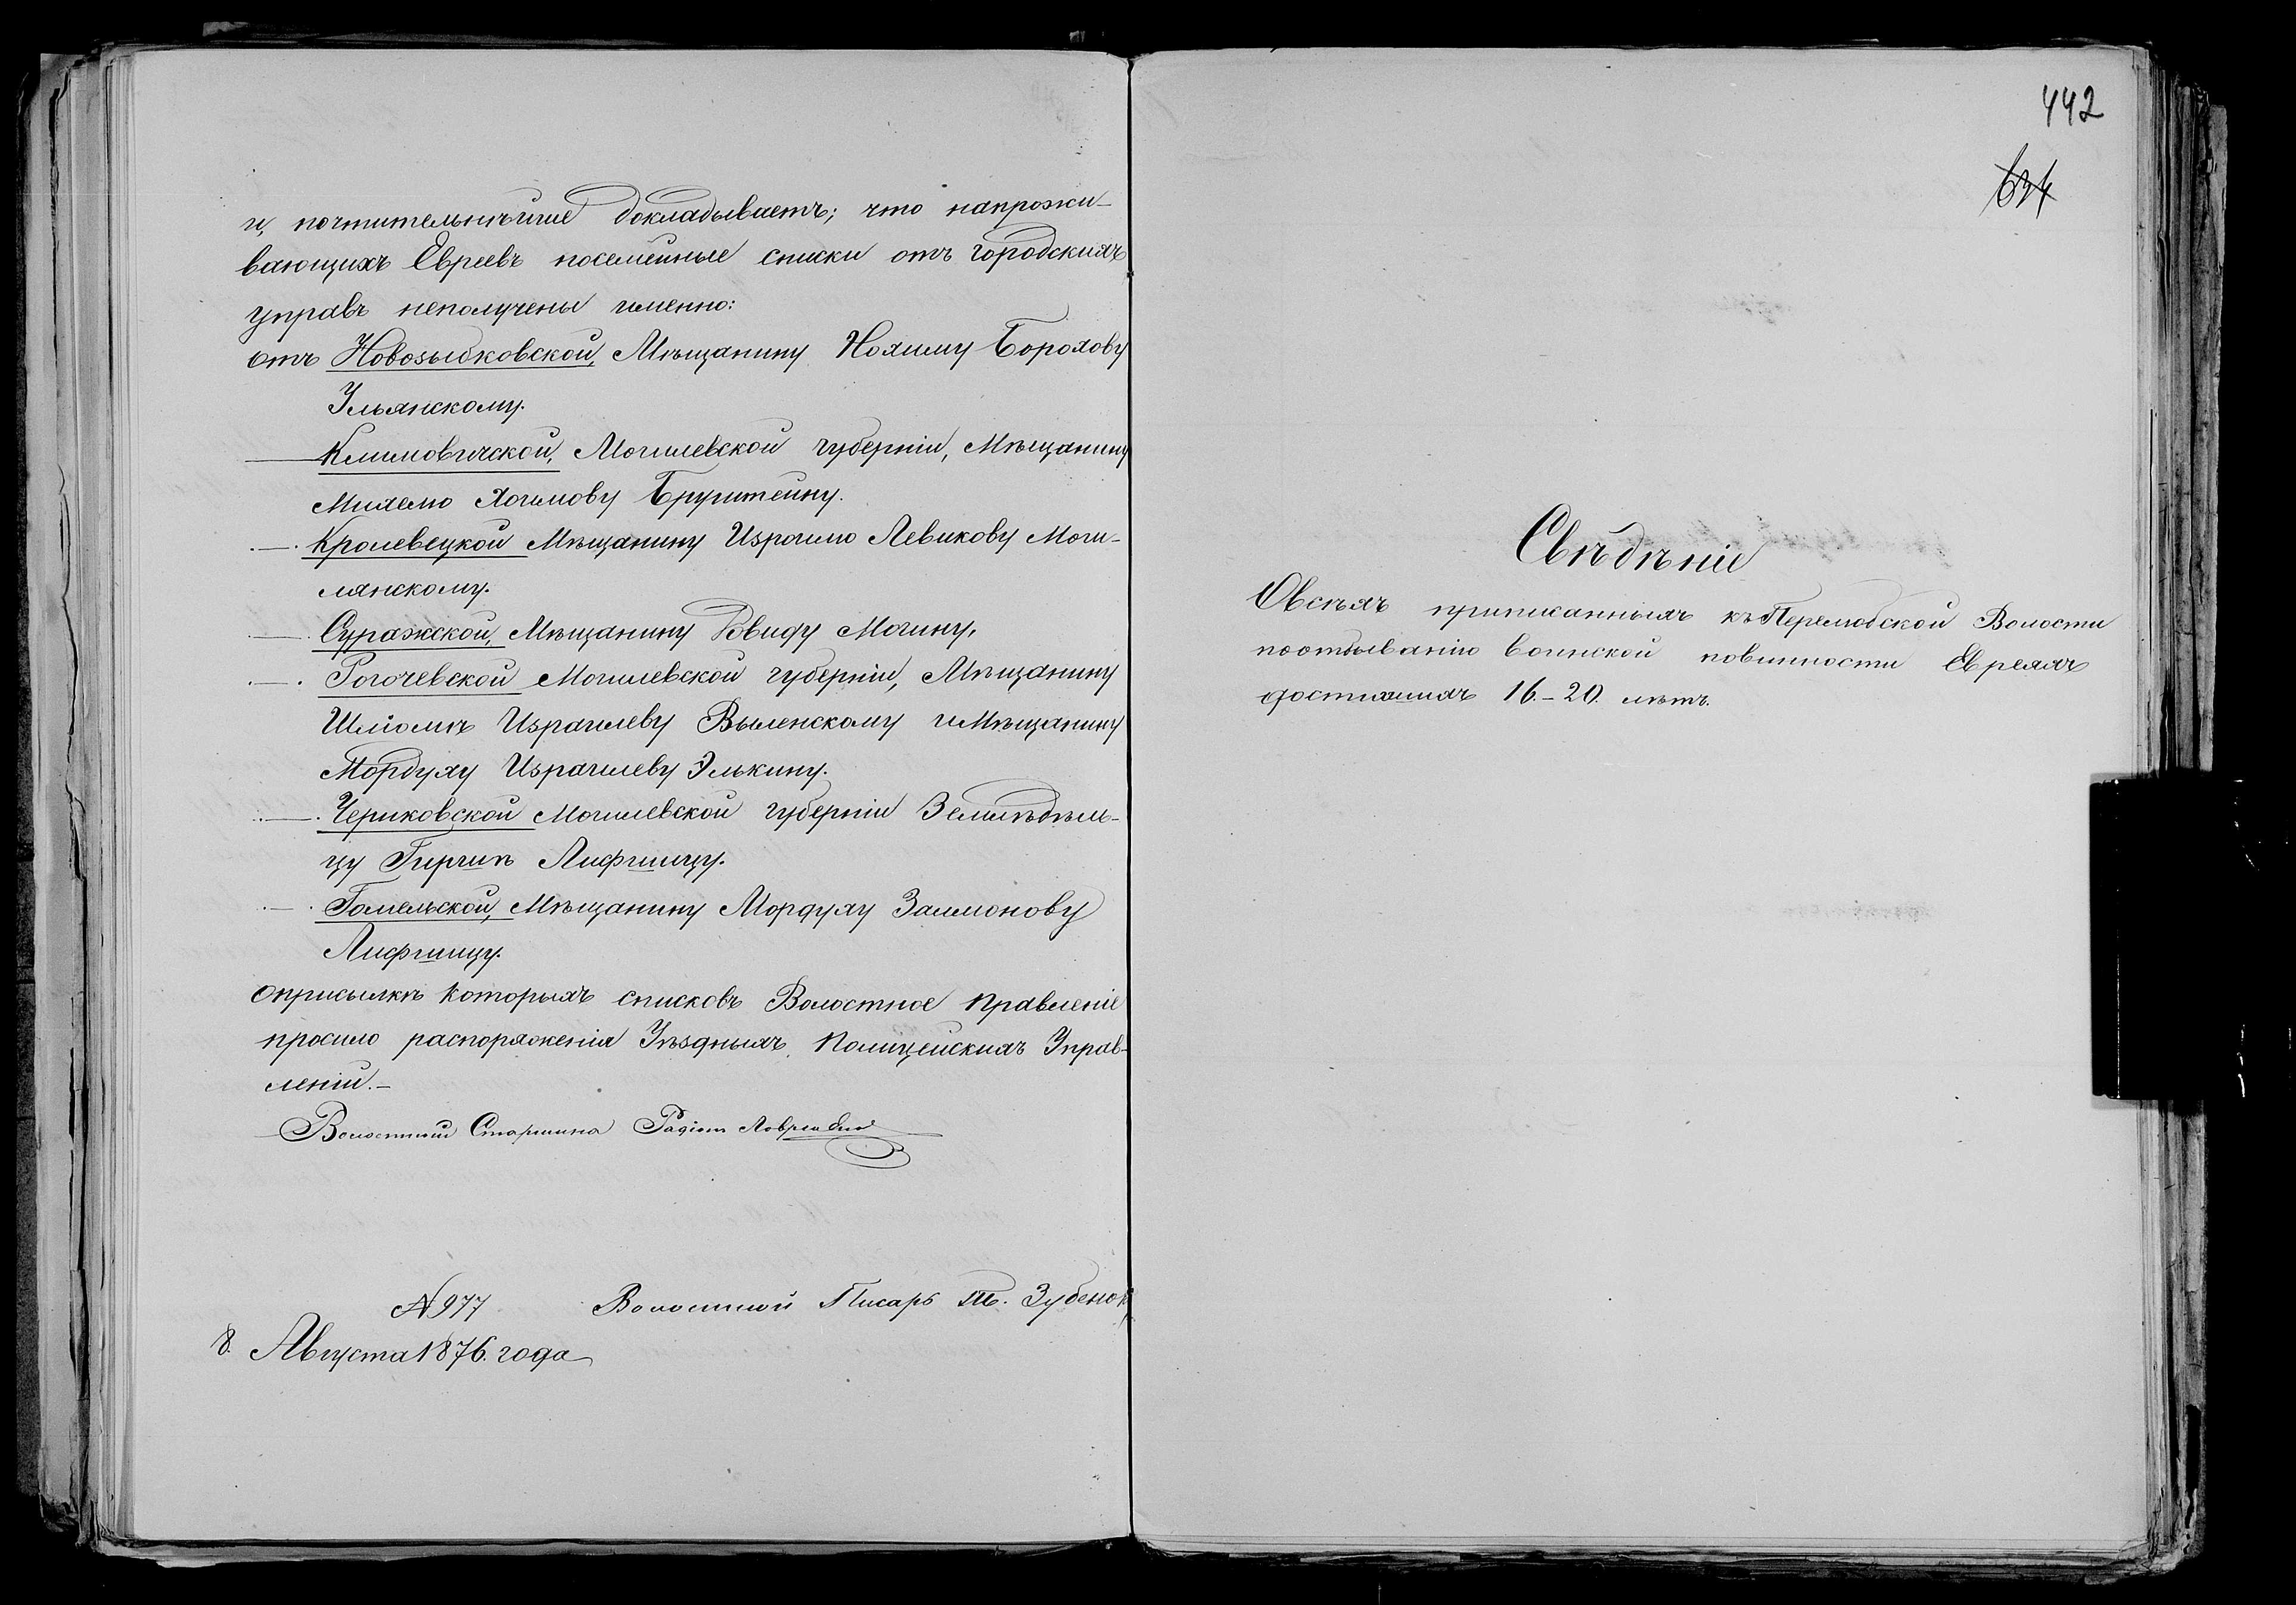 и, почтительнѣйше докладываетъ; что напрожи-
вающихъ Евреевъ посемейные списки отъ городскихъ
управъ неполучены именно:
отъ Новозыбковской, Мѣщанину Нохиму Борохову
Ульянскому.
— Климовичской, Могилевской губерніи, Мѣщанину
Михелю Хаимову Бруштейну.
— Кролевецкой Мѣщанину Израилю Левикову Моги-
лянскому.
— Суражской, Мѣщанину Вовиду Могину,
— Рогочевской Могилевской губерніи, Мѣщанину
Шліомѣ Израилеву Выленскому иМѣщанину
Мордуху Израилеву Элькину.
— Чериковской Могилевской губерніи Землѣдѣль-
цу Гиршѣ Лифшицу.
— Гомельской, Мѣщанину Мордуху Залмонову
Лифшицу.
оприсылкѣ которыхъ списковъ Волостное Правленіе
просило распоряженія Уѣздныхъ Полицейскихъ Управ-
леній.—
Волостной Старшина Радіон
№ 977 Волостной Писарь Зубенок
8. Августа 1876. года
442
634
Свѣдѣніе
Овсѣхъ приписанныхъ къ Перелюбской Волости
поотбыванію воинской повинности Евреяхъ
достихшихъ 16.–20. лѣтъ.